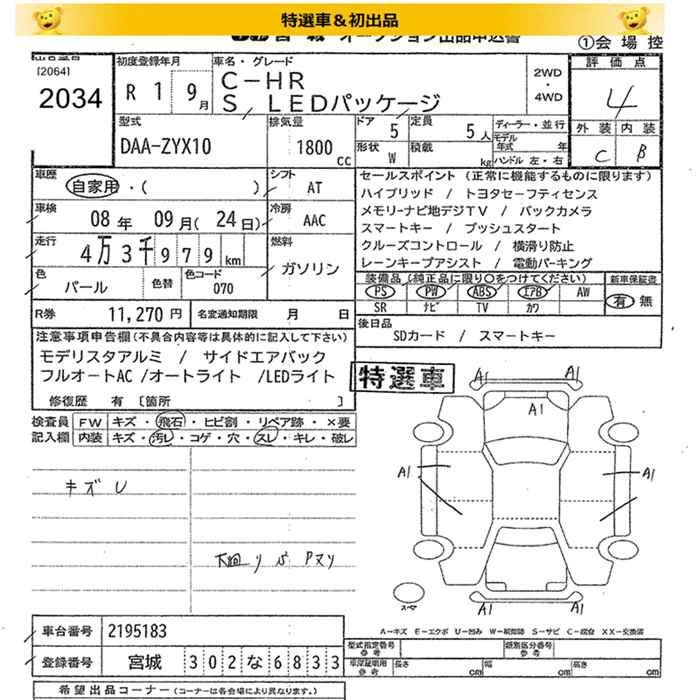 特選車&初出品
宮城 オークション出品申込書
①会場控
出品番号
[2064]
2034
初度登録年月
R 1 9月
車名・グレード
C-HR
S LEDパッケージ
2WD
・
4WD
評価点
4
外装 内装
C B
型式
DAA-ZYX10
排気量
1800 cc
ドア 5
定員 5人
形状 W
積載 kg
ディーラー・並行
モデル年式 年
ハンドル 左・右
車歴
自家用・( )
シフト
AT
車検
08年 09月(24日)
冷房
AAC
走行
4万3千979km
燃料
ガソリン
色
パール
色替
色コード
070
R券 11,270円
名変通知期限 月 日
セールスポイント(正常に機能するものに限ります)
ハイブリッド / トヨタセーフティセンス
メモリーナビ地デジTV / バックカメラ
スマートキー / プッシュスタート
クルーズコントロール / 横滑り防止
レーンキープアシスト / 電動パーキング
装備品(純正品に限り○をつけてください)
新車保証書
PS PW ABS エアB AW
有 無
SR ナビ TV カワ
後日品
SDカード / スマートキー
注意事項申告欄(不具合内容等は具体的に記入して下さい)
モデリスタアルミ / サイドエアバック
フルオートAC /オートライト /LEDライト
修復歴 有 [箇所 ]
特選車
検査員
記入欄
FW キズ・飛石・ヒビ割・リペア跡・×要
内装 キズ・汚レ・コゲ・穴・スレ・キレ・破レ
キズU
下廻りサビPヌリ
A1 A1
A1
A1 A1
A1 A1
スペア
A-キズ E-エクボ U-凹み W-補修跡 S-サビ C-腐食 XX-交換済
車台番号 2195183
登録番号 宮城 302な6833
型式指定番号
参考
類別区分番号
参考
車庫証明用
参考
長さ cm
幅 cm
高さ cm
希望出品コーナー(コーナーは各会場により異なります。)